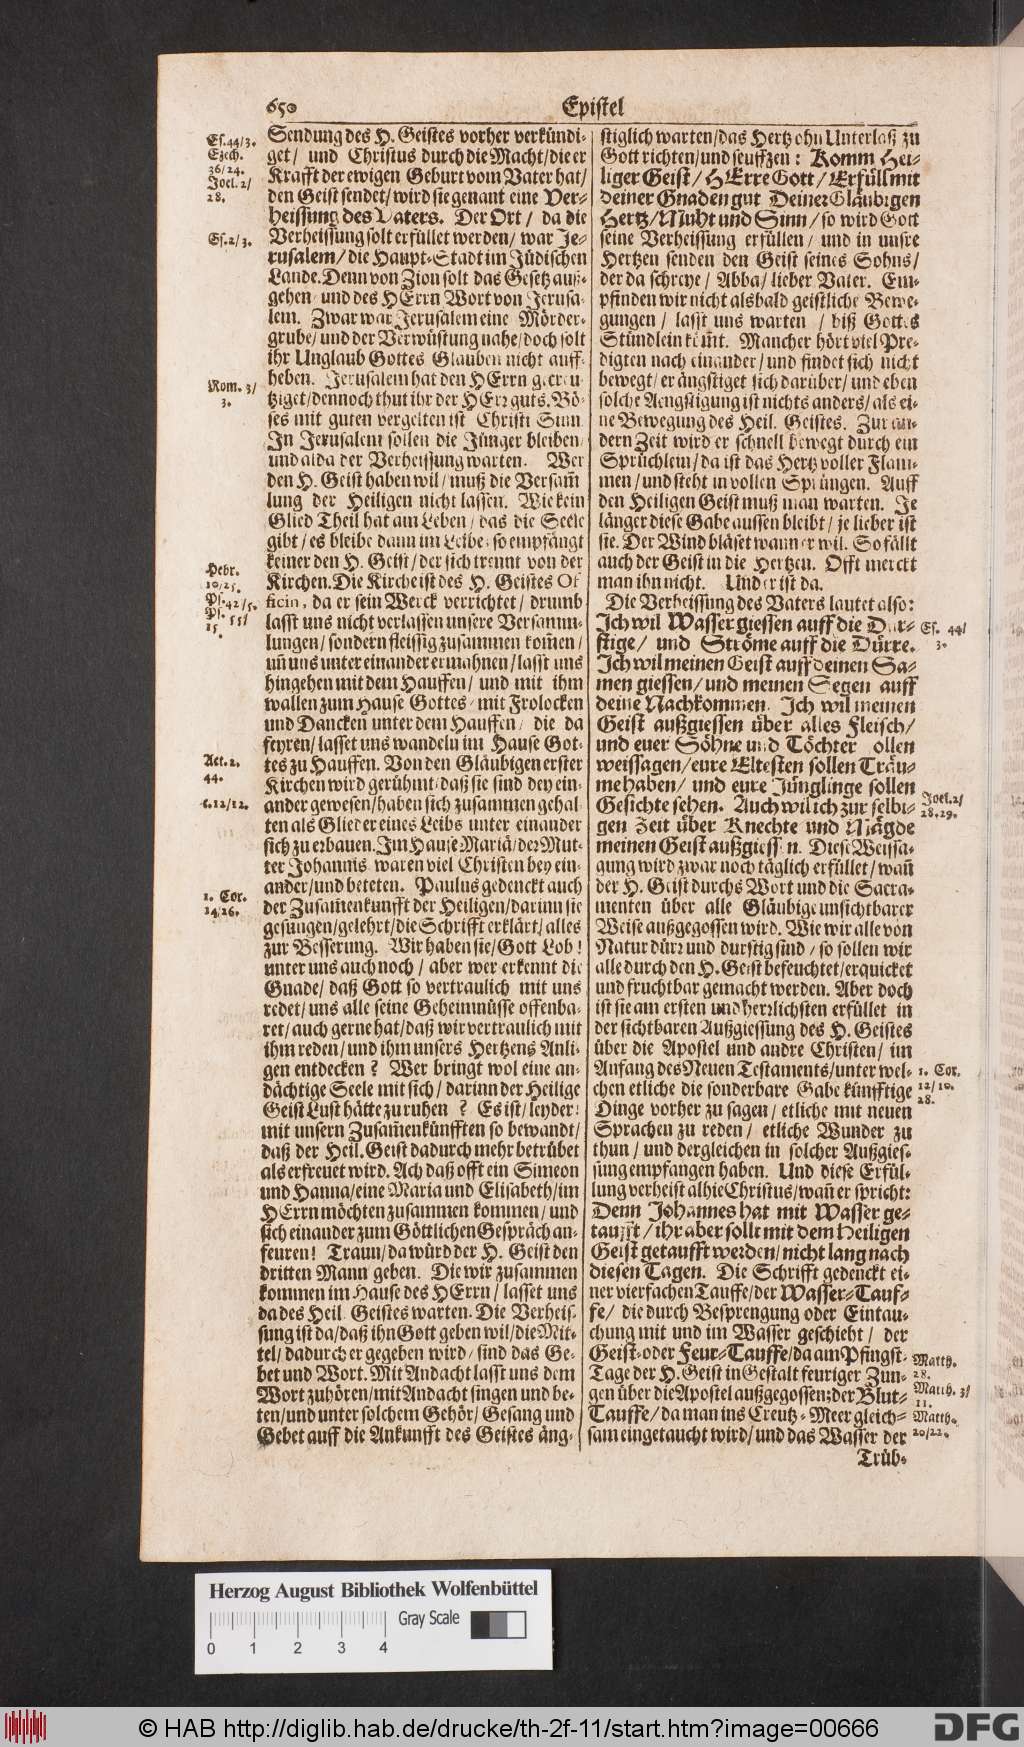 650
Epistel
Es. 44/3.
Ezech.
36/24.
Joel. 2/
28.
Es. 2/3.
Rom. 3/
3.
Hebr.
10/25.
Ps. 42/5.
Ps. 55/
15.
Act. 2.
44.
c. 12/12.
1. Cor.
14/26.
Sendung des H. Geistes vorher verkündi-
get/ und Christus durch die Macht/die er
Krafft der ewigen Geburt vom Vater hat/
den Geist sendet/wird sie genant eine Ver-
heissung des Vaters. Der Ort/ da die
Verheissung solt erfüllet werden/ war Je-
rusalem/die Haupt-Stadt im Jüdischen
Lande. Denn von Zion solt das Gesetz auß-
gehen und des HErrn Wort von Jerusa-
lem. Zwar war Jerusalem eine Mörder-
grube/ und der Verwüstung nahe/doch solt
ihr Unglaub Gottes Glauben nicht auff-
heben. Jerusalem hat den HErrn gecreu-
tziget/dennoch thut ihr der HErr guts. Bö-
ses mit guten vergelten ist Christi Sinn
In Jerusalem sollen die Jünger bleiben/
und alda der Verheissung warten. Wer
den H. Geist haben wil/muß die Versam̄-
lung der Heiligen nicht lassen. Wie kein
Glied Theil hat am Leben/das die Seele
gibt/es bleibe dann im Leibe: so empfängt
keiner den H. Geist/der sich trennt von der
Kirchen. Die Kirche ist des H. Geistes Of-
ficin, da er sein Werck verrichtet/ drumb
lasst uns nicht verlassen unsere Versamm-
lungen/sondern fleissig zusammen kom̄en/
uñ uns unter einander ermahnen/lasst uns
hingehen mit dem Hauffen/ und mit ihm
wallen zum Hause Gottes/mit Frolocken
und Dancken unter dem Hauffen/ die da
feyren/lasset uns wandeln im Hause Got-
tes zu Hauffen. Von den Gläubigen erster
Kirchen wird gerühmt/daß sie sind bey ein-
ander gewesen/haben sich zusammen gehal-
ten als Glieder eines Leibs unter einander
sich zu erbauen. Im Hause Mariä/der Mut-
ter Johannis waren viel Christen bey ein-
ander/und beteten. Paulus gedenckt auch
der Zusam̄enkunfft der Heiligen/darinn sie
gesungen/gelehrt/die Schrifft erklärt/alles
zur Besserung. Wir haben sie/Gott Lob!
unter uns auch noch/ aber wer erkennt die
Gnade/daß Gott so vertraulich mit uns
redet/uns alle seine Geheimnüsse offenba-
ret/auch gerne hat/daß wir vertraulich mit
ihm reden/und ihm unsers Hertzens Anli-
gen entdecken? Wer bringt wol eine an-
dächtige Seele mit sich/darinn der Heilige
Geist Lust hätte zu ruhen? Es ist/leyder!
mit unsern Zusam̄enkünfften so bewandt/
daß der Heil. Geist dadurch mehr betrübet
als erfreuet wird. Ach daß offt ein Simeon
und Hanna/eine Maria und Elisabeth/im
HErrn möchten zusammen kommen/und
sich einander zum Göttlichen Gespräch an-
feuren! Traun/da würd der H. Geist den
dritten Mann geben. Die wir zusammen
kommen im Hause des HErrn/lasset uns
da des Heil. Geistes warten. Die Verheis-
sung ist da/daß ihn Gott geben wil/die Mit-
tel/dadurch er gegeben wird/sind das Ge-
bet und Wort. Mit Andacht lasst uns dem
Wort zuhören/mit Andacht singen und be-
ten/und unter solchem Gehör/Gesang und
Gebet auff die Ankunfft des Geistes äng-
stiglich warten/das Hertz ohn Unterlaß zu
Gott richten/und seuffzen: Komm Hei-
liger Geist/HErre Gott/Erfüll mit
deiner Gnaden gut Deiner Gläubigen
Hertz/Muht und Sinn/so wird Gott
seine Verheissung erfüllen/und in unsre
Hertzen senden den Geist seines Sohns/
der da schreye/Abba/lieber Vater. Em-
pfinden wir nicht alsbald geistliche Bewe-
gungen/ lasst uns warten/ biß Gottes
Stündlein köm̄t. Mancher hört viel Pre-
digten nach einander/und findet sich nicht
bewegt/er ängstiget sich darüber/und eben
solche Aengstigung ist nichts anders/als ei-
ne Bewegung des Heil. Geistes. Zur an-
dern Zeit wird er schnell bewegt durch ein
Sprüchlein/da ist das Hertz voller Flam-
men/und steht in vollen Sprüngen. Auff
den Heiligen Geist muß man warten. Je
länger diese Gabe aussen bleibt/je lieber ist
sie. Der Wind bläset wann er wil. So fällt
auch der Geist in die Hertzen. Offt merckt
man ihn nicht. Und er ist da.
Die Verheissung des Vaters lautet also:
Ich wil Wasser giessen auff die Dur-
stige/ und Ströme auff die Dürre.
Ich wil meinen Geist auff deinen Sa-
men giessen/und meinen Segen auff
deine Nachkommen. Ich wil meinen
Geist außgiessen über alles Fleisch/
und euer Söhne und Töchter sollen
weissagen/eure Eltesten sollen Träu-
me haben/ und eure Jünglinge sollen
Gesichte sehen. Auch wil ich zur selbi-
gen Zeit über Knechte und Mägde
meinen Geist außgiessen. Diese Weissa-
gung wird zwar noch täglich erfüllet/wañ
der H. Geist durchs Wort und die Sacra-
menten über alle Gläubige unsichtbarer
Weise außgegossen wird. Wie wir alle von
Natur dürr und durstig sind/so sollen wir
alle durch den H. Geist befeuchtet/erquicket
und fruchtbar gemacht werden. Aber doch
ist sie am ersten und herrlichsten erfüllet in
der sichtbaren Außgiessung des H. Geistes
über die Apostel und andre Christen/im
Anfang des Neuen Testaments/unter wel-
chen etliche die sonderbare Gabe künfftige
Dinge vorher zu sagen/etliche mit neuen
Sprachen zu reden/ etliche Wunder zu
thun/und dergleichen in solcher Außgies-
sung empfangen haben. Und diese Erfül-
lung verheist alhie Christus/wañ er spricht:
Denn Johannes hat mit Wasser ge-
taufft/ihr aber sollt mit dem Heiligen
Geist getaufft werden/nicht lang nach
diesen Tagen. Die Schrifft gedenckt ei-
ner vierfachen Tauffe/der Wasser-Tauf-
fe/ die durch Besprengung oder Eintau-
chung mit und im Wasser geschieht/ der
Geist-oder Feur-Tauffe/da am Pfingst-
Tage der H. Geist in Gestalt feuriger Zun-
gen über die Apostel außgegossen; der Blut-
Tauffe/da man ins Creutz-Meer gleich-
sam eingetaucht wird/und das Wasser der
Trüb-
Es. 44/
3.
Joel. 2/
28. 29.
1. Cor.
12/10.
28.
Matth.
28.
Matth. 3/
11.
Matth.
20/22.
Herzog August Bibliothek Wolfenbüttel
Gray Scale
0 1 2 3 4
© HAB http://diglib.hab.de/drucke/th-2f-11/start.htm?image=00666
DFG